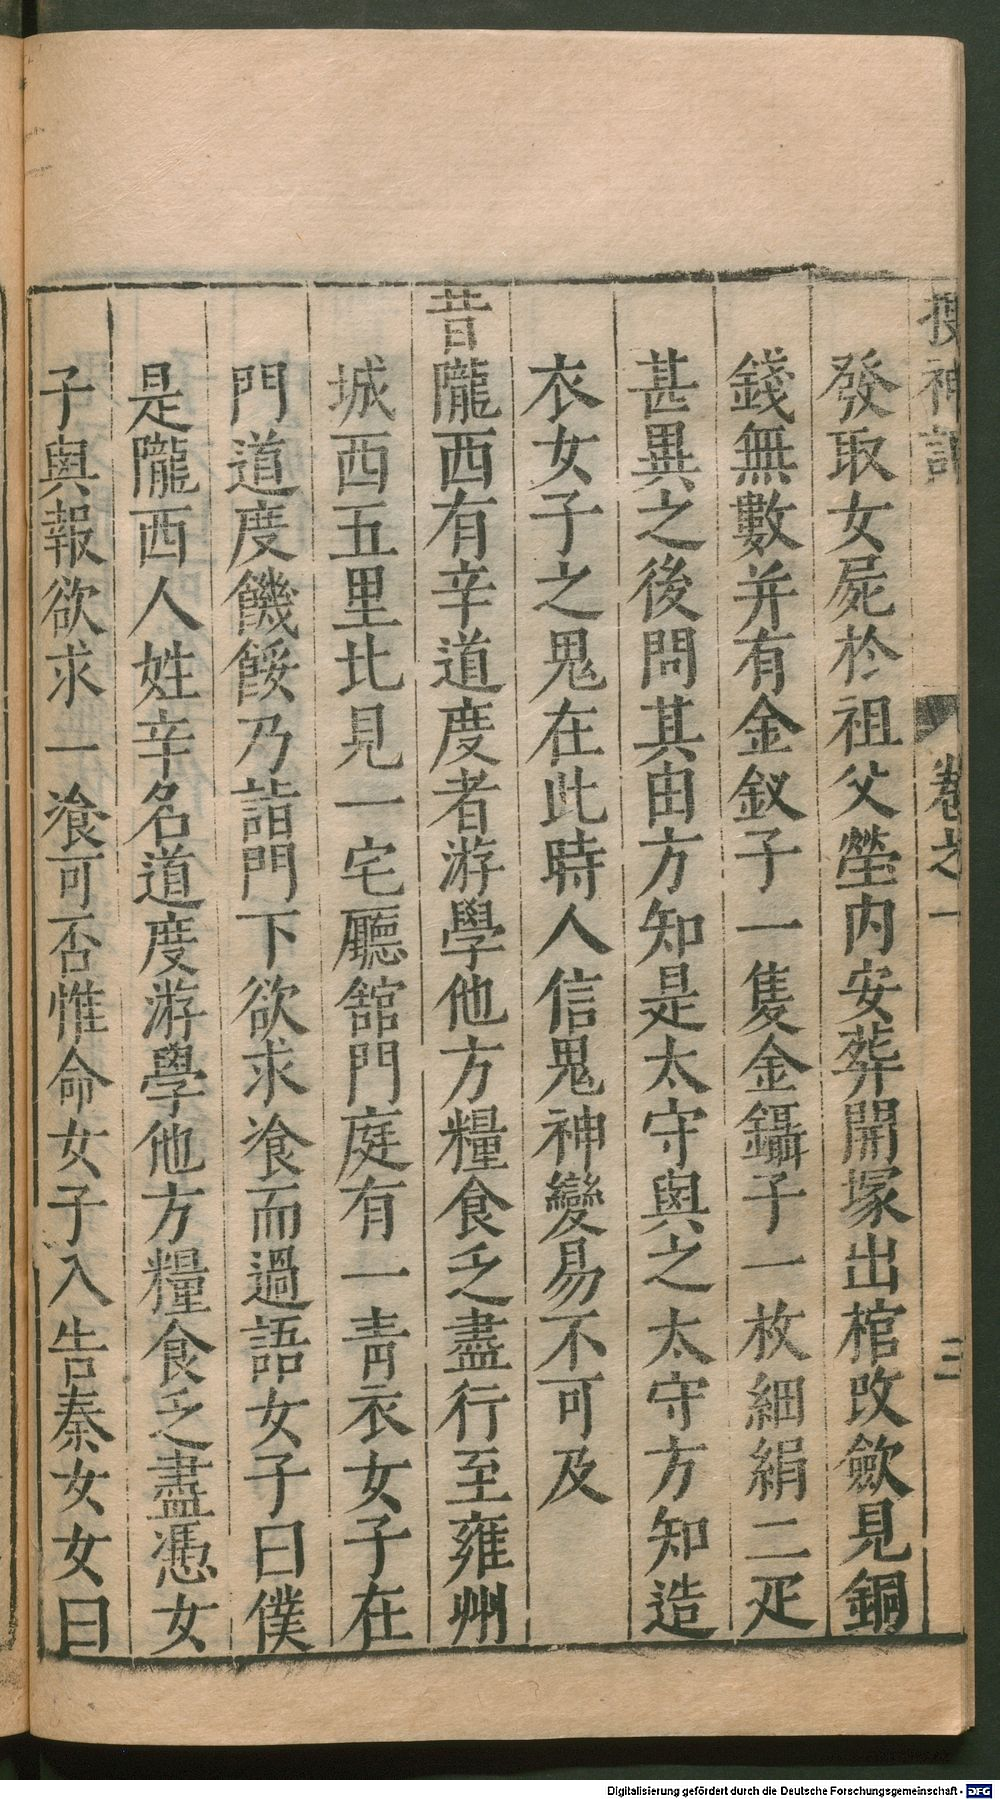 搜神記 卷之一 三
發取女屍於祖父塋内安葬開塚出棺改歛見銅
錢無數并有金釵子一隻金鑷子一枚細絹二疋
甚異之後問其由方知是太守與之太守方知造
衣女子之鬼在此時人信鬼神變易不可及
昔隴西有辛道度者游學他方糧食乏盡行至雍州
城西五里比見一宅廳舘門庭有一青衣女子在
門道度饑餒乃詣門下欲求飡而過語女子曰僕
是隴西人姓辛名道度游學他方糧食乏盡憑女
子與報欲求一飡可否惟命女子入告秦女女曰
Digitalisierung gefördert durch die Deutsche Forschungsgemeinschaft - DFG